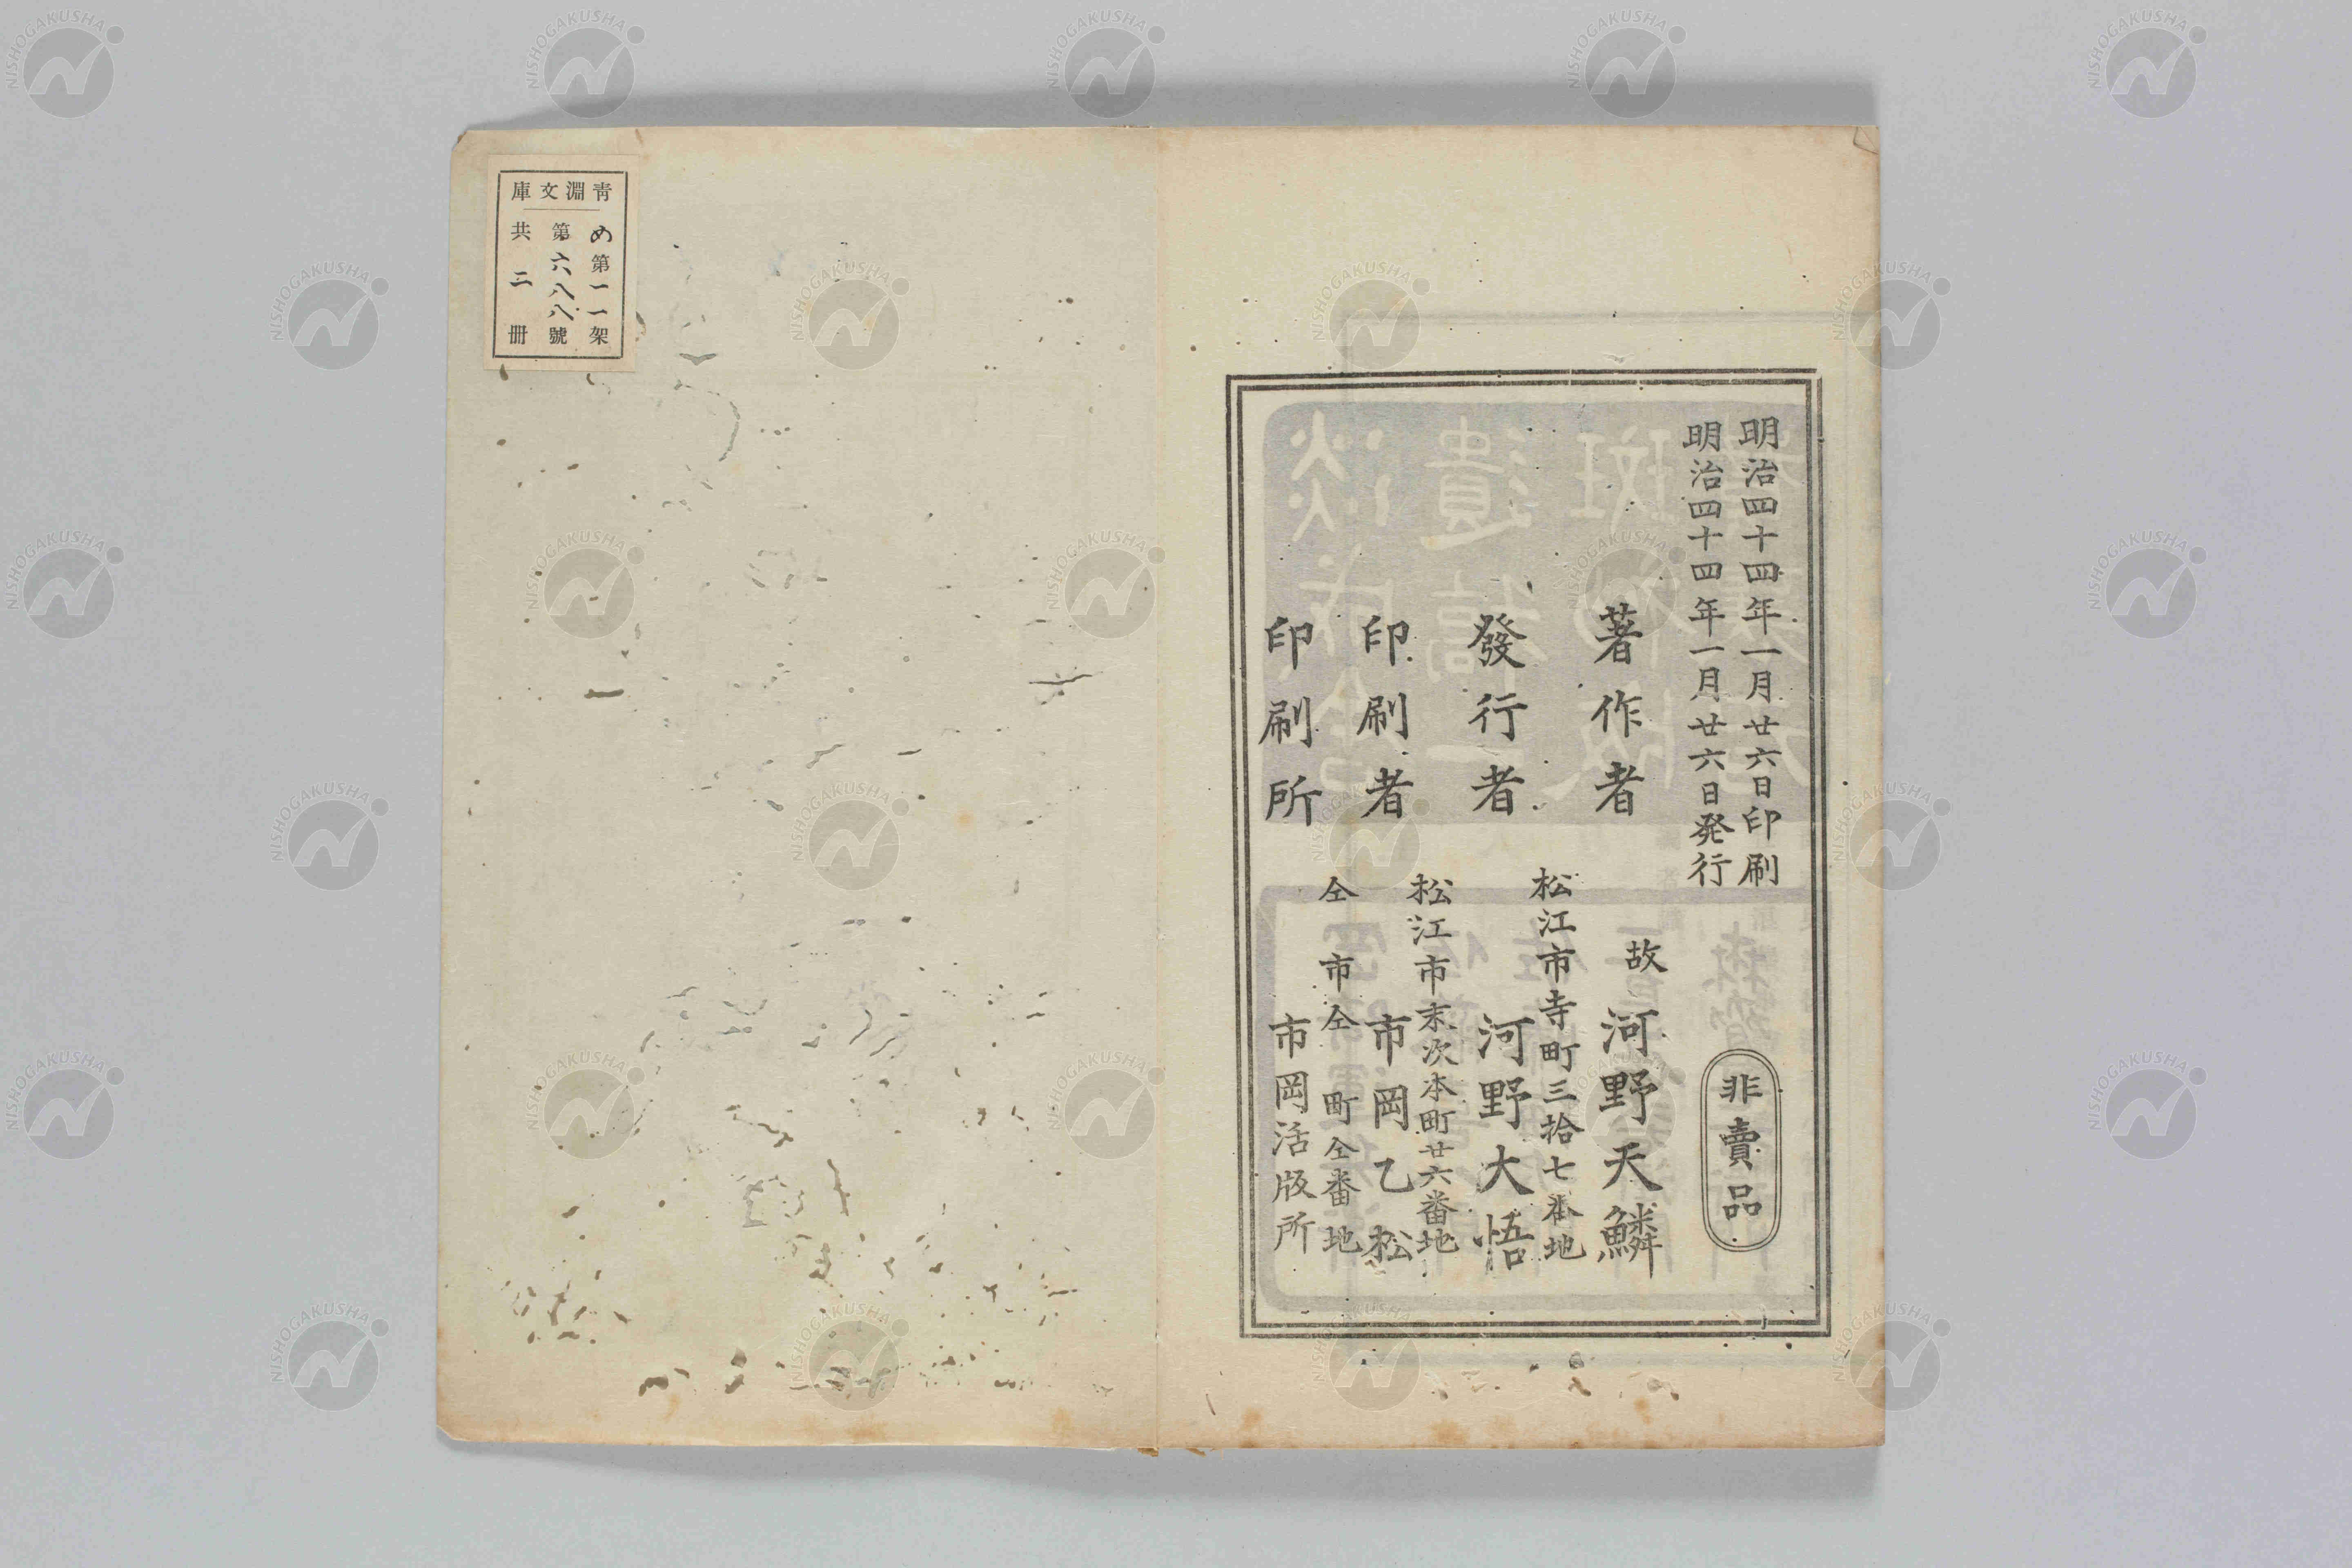 明治四十四年一月廿六日印刷
明治四十四年一月廿六日発行
非賣品
著作者 故 河野天鱗
松江市寺町三拾七番地
發行者 河野大悟
松江市末次本町廿六番地
印刷者 市岡乙松
仝市仝町仝番地
印刷所 市岡活版所
靑淵文庫
め第一一架
第六八八號
共二冊
NISHOGAKUSHA